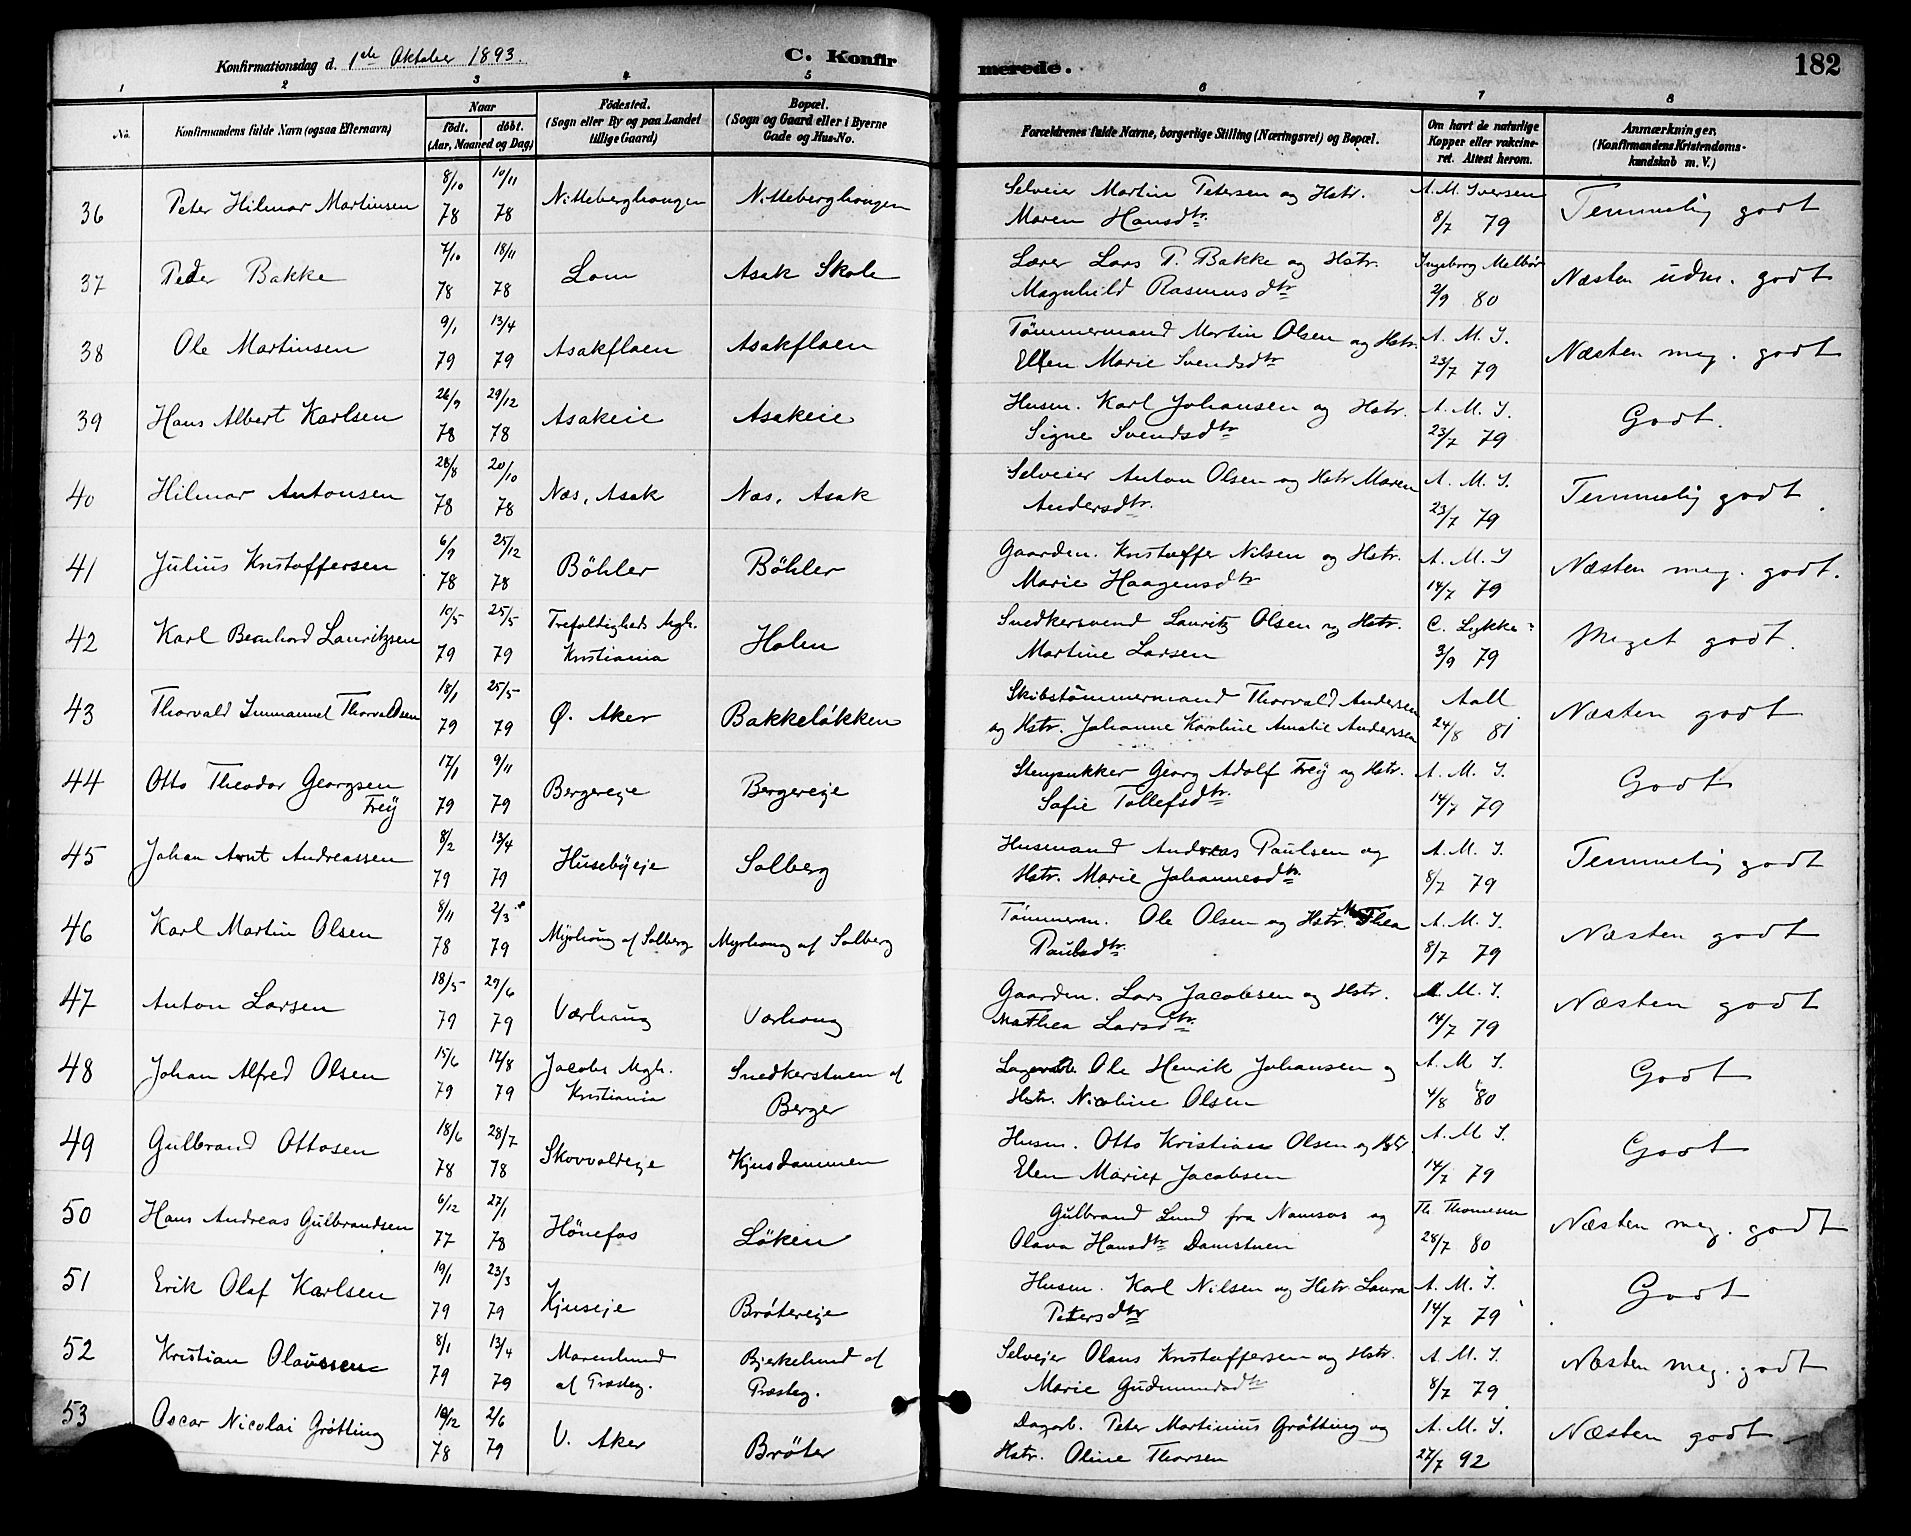 Konfirmationsdag d. 1ste Oktober 1893. C. Konfirmerede. 182
1 2 3 4 5 6 7 8
No. Konfirmandens fulde Navn (ogsaa Efternavn) Naar født. døbt. (Aar, Maaned og Dag) Fødested. (Sogn eller By og paa Landet tillige Gaard) Bopæl. (Sogn og Gaard eller i Byerne Gade og Hus-No. Forældrenes fulde Navne, borgerlige Stilling (Næringsvei) og Bopæl. Om havt de naturlige Kopper eller vakcineret. Attest herom. Anmærkninger. (Konfirmandens Kristendomskundskab m. V.)
36 Peter Hilmar Martinsen 8/10 78 10/11 78 Nitteberghaugen Nitteberghaugen Selveier Martin Petersen og Hstr. A. M. Iversen Temmelig godt
Maren Hansdtr 8/7 79
37 Peder Bakke 7/10 78 18/11 78 Lom Asak Skole Lærer Lars P. Bakke og Hstr. Ingeborg Melbør Næsten udm. godt
Magnhild Rasmusdtr 2/9 80
38 Ole Martinsen 9/1 79 13/4 79 Asakflaen Asakflaen Tømmermand Martin Olsen og Hstr. A. M. I. Næsten meg. godt
Ellen Marie Svendsdtr 23/7 79
39 Hans Albert Karlsen 26/9 78 29/12 78 Asakeie Asakeie Husm. Karl Johansen og Hstr. A. M. I. Godt.
Signe Svendsdtr 23/7 79
40 Hilmar Antonsen 28/8 78 20/10 78 Næs, Asak Næs, Asak Selveier Anton Olsen og Hstr Maren A. M. I. Temmelig godt.
Andersdtr. 23/7 79
41 Julius Kristoffersen 6/9 78 25/12 78 Böhler Böhler Gaardm. Kristoffer Nilsen og Hstr. A. M. I Næsten meg. godt.
Marie Haagensdtr 14/7 79
42 Karl Bernhard Lauritzsen 10/5 79 25/5 79 Trefoldigheds Mgh. Kristiania Holm Snedkersvend Lauritz Olsen og Hstr. C. Lykke Meget godt.
Martine Larsen 3/9 79
43 Thorvald Immanuel Thorvaldsen 18/1 79 25/5 79 Ø. Aker Bakkeløkken Skibstømmermand Thorvald Andersen Aall Næsten godt
og Hstr. Johanne Karoline Amalie Anderssen 24/8 81
44 Otto Theodor Georgsen Freÿ 17/1 79 9/11 79 Bergereje Bergereje Stenpukker Georg Adolf Freÿ og Hstr. A. M. I. Godt
Sofie Tollefsdtr 14/7 79
45 Johan Arnt Andreassen 8/2 79 13/4 79 Husebÿeje Solberg Husmand Andreas Paulsen og A. M. I. Temmelig godt
Hstr. Marie Johannesdtr 8/7 79
46 Karl Martin Olsen 8/11 78 2/3 79 Myrhaug af Solberg Myrhaug af Solberg Tømmerm. Ole Olsen og Hstr. Thea A. M. I. Næsten godt
Paulsdtr. 8/7 79
47 Anton Larsen 18/5 79 29/6 79 Værhaug Værhaug Gaardm. Lars Jacobsen og Hstr. A. M. I. Næsten godt
Mathea Larsdtr 14/7 79
48 Johan Alfred Olsen 15/6 79 17/8 79 Jacobs Mgh. Kristiania Snedkerstuen af Berger Ole Henrik Johansen og A. M I. Godt
Hstr. Nicoline Olsen 4/8 80
49 Gulbrand Ottosen 18/6 78 28/7 78 Skovvoldeje Kjusdammen Husm. Otto Kristian Olsen og Hstr A. M I. Godt
Elen Marie Jacobsen 14/7 79
50 Hans Andreas Gulbrandsen 6/12 77 27/1 78 Hönefos Løken Gulbrand Lund fra Namsos og Th. Thomesen Næsten meg. godt
Olava Hansdtr Damstuen 28/7 80
51 Erik Olaf Karlsen 19/1 79 23/3 79 Kjuseje Brøtereje Husm. Karl Nilsen og Hstr Laura A. M. I. Godt
Petersdtr 14/7 79
52 Kristian Olaussen 8/1 79 13/4 79 Marenlund af Præsteg. Bjerkelund af Præsteg. Selvejer Olaus Kristoffersen og Hstr. A. M. I. Næsten meg. godt
Marie Gudmundsdtr 8/7 79
53 Oscar Nicolai Grøtting 10/12 78 2/6 79 V. Aker Brøter Dagarb. Peter Martinius Grøtting og A. M. I. Næsten godt
Hstr. Oline Thorsen 27/7 92